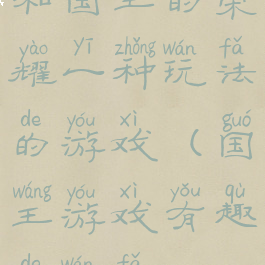 和国王的荣
yào yī zhǒng wán fǎ
耀一种玩法
de yóu xì guó
的游戏（国
wáng yóu xì yǒu qù
王游戏有趣
de wán fǎ